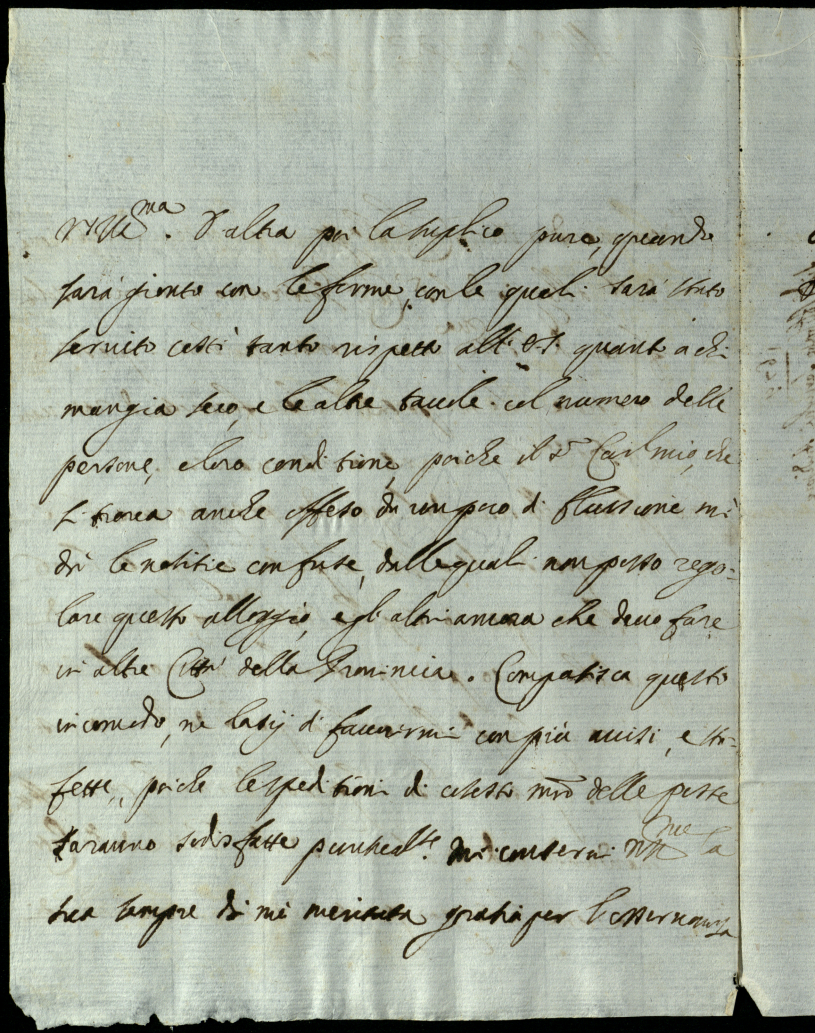 D'altra poi la suplico pure, quando
sarà gionto con le forme, con le quali sarà stato
seruito costì tanto rispetto all' quanto a chi
mangia seco, e le altre tauole col numero delle
persone, e loro conditione, poiche il che
si troua anche offeso da un poco di flussione mi
dà le notitie confuse, dalle quali non posso rego-
lare questo alloggio, e gli altri ancora che deuo fare
in altre Città della Prouincia. Compatisca questo
incomodo, ne lasij di fauorirmi con più auisi, e sta-
fette, poiche le speditioni di cotesto mro delle poste
saranno sodisfatte puntualte. Mi conserui la
sua sempre da me meritata gratia per l'osseruanza